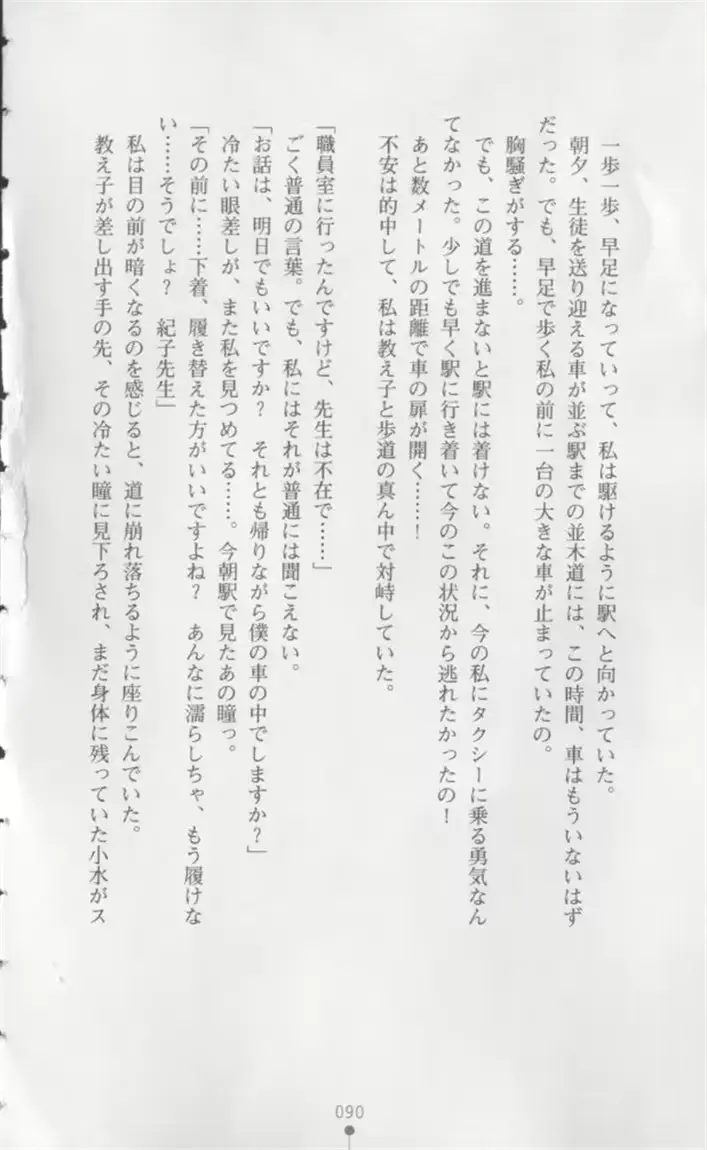 一歩一歩、早足になっていって、私は駆けるように駅へと向かっていた。
朝夕、生徒を送り迎える車が並ぶ駅までの並木道には、この時間、車はもういないはず
だった。でも、早足で歩く私の前に一台の大きな車が止まっていたの。
胸騒ぎがする……。
でも、この道を進まないと駅には着けない。それに、今の私にタクシーに乗る勇気なん
てなかった。少しでも早く駅に行き着いて今のこの状況から逃れたかったの！
あと数メートルの距離で車の扉が開く……！
不安は的中して、私は教え子と歩道の真ん中で対峙していた。
「職員室に行ったんですけど、先生は不在で……」
ごく普通の言葉。でも、私にはそれが普通には聞こえない。
「お話は、明日でもいいですか？　それとも帰りながら僕の車の中でしますか？」
冷たい眼差しが、また私を見つめてる……。今朝駅で見たあの瞳っ。
「その前に……下着、履き替えた方がいいですよね？　あんなに濡らしちゃ、もう履けな
い……そうでしょ？　紀子先生」
私は目の前が暗くなるのを感じると、道に崩れ落ちるように座りこんでいた。
教え子が差し出す手の先、その冷たい瞳に見下ろされ、まだ身体に残っていた小水がス
090